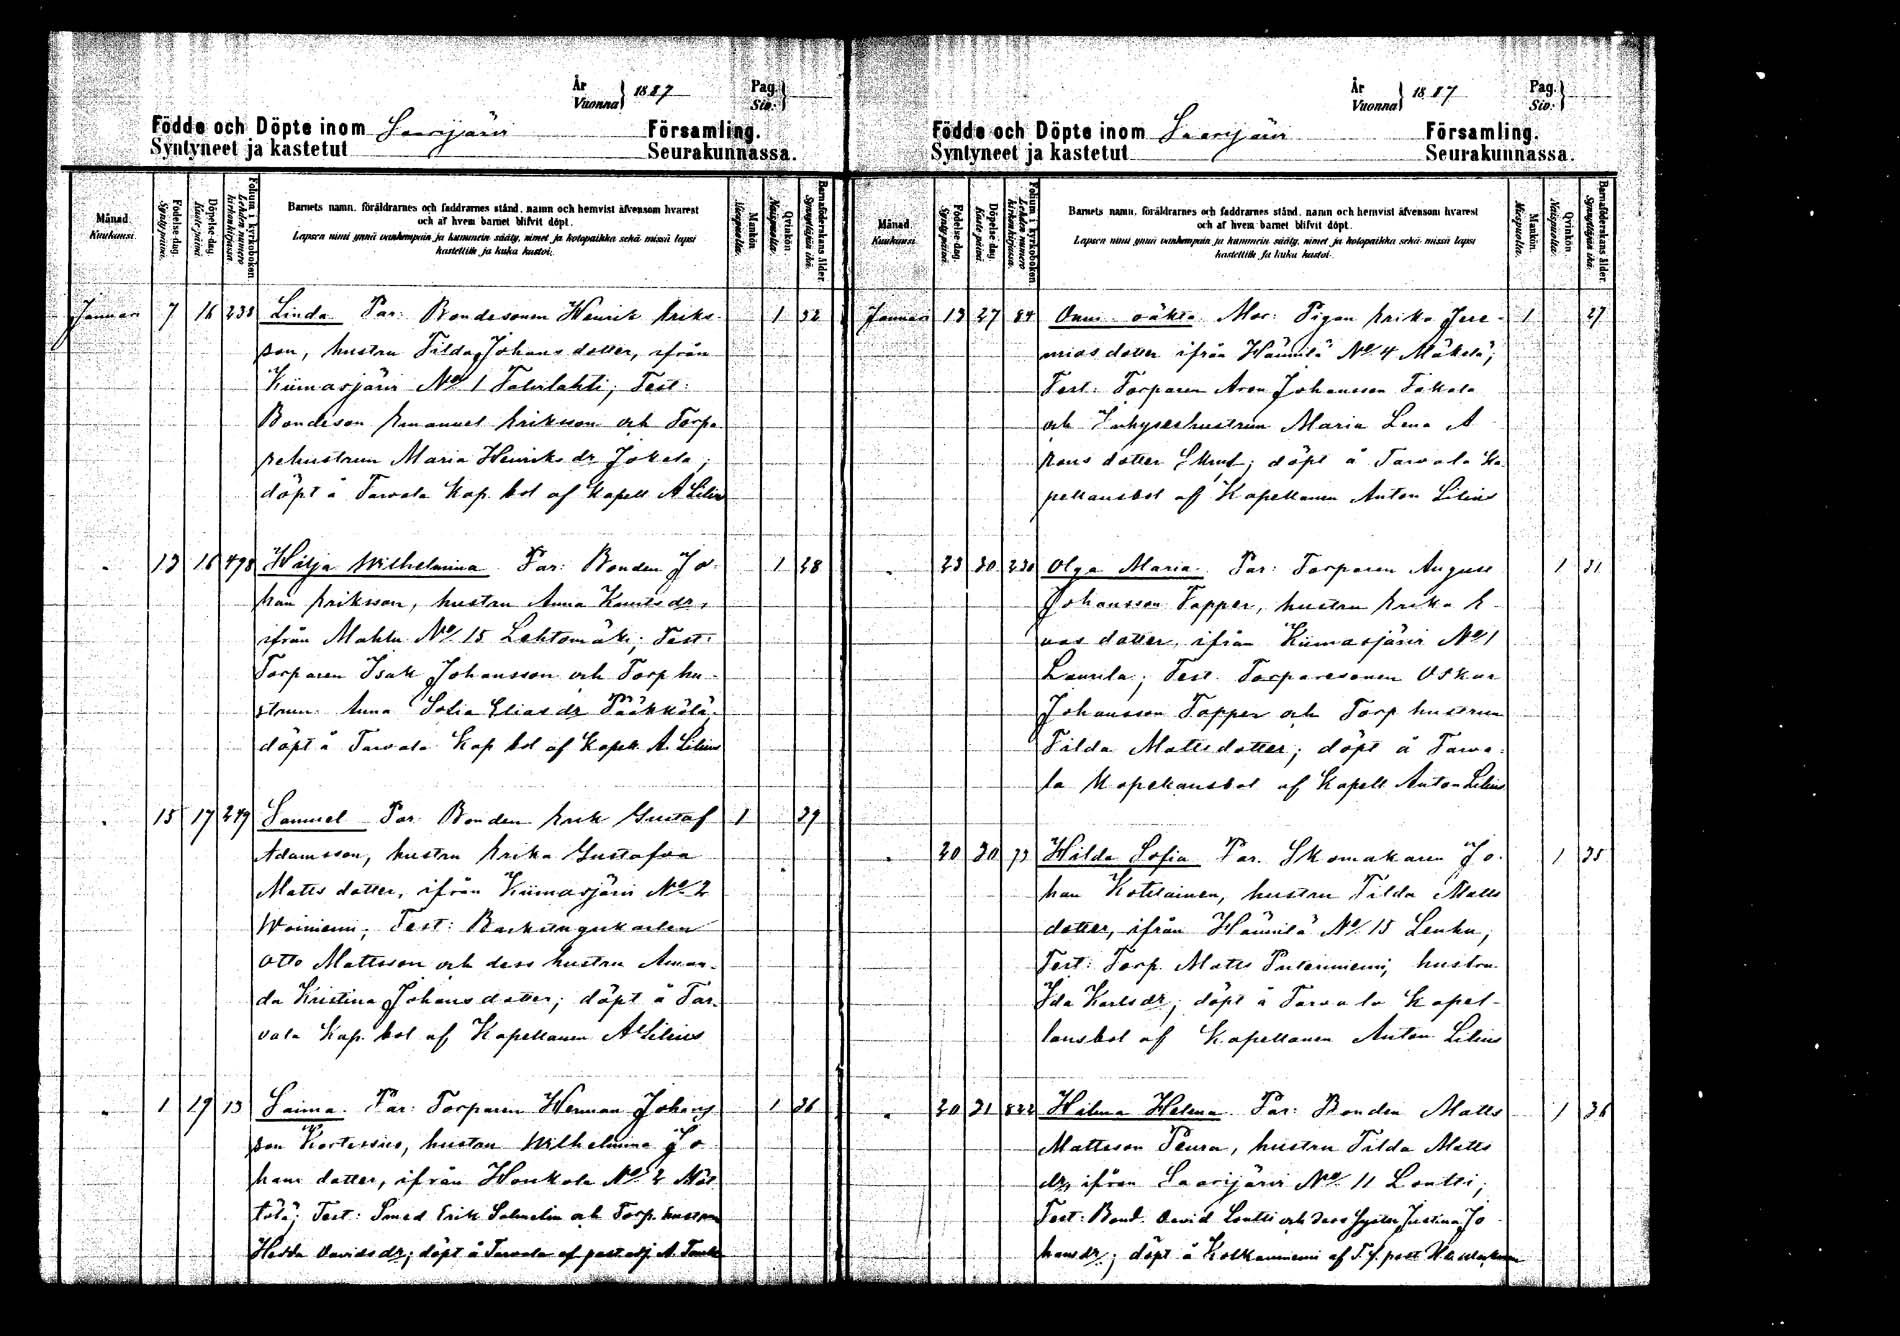 År
Vuonna } 1887
Pag.
Siv. }
Födde och Döpte inom Saarijärvi Församling.
Syntyneet ja kastetut Seurakunnassa.
Månad.
Kuukausi.
Födelse-dag.
Synty-päivä.
Döpelse-dag.
Kaste-päivä.
Folium i kyrkoboken.
Lehden numero kirkonkirjassa.
Barnets namn, föräldrarnes och faddrarnes stånd, namn och hemvist äfvensom hvarest
och af hvem barnet blifvit döpt.
Lapsen nimi ynnä vanhempain ja kummein sääty, nimet ja kotopaikka sekä missä lapsi
kastettiin ja kuka kastoi.
Mankön.
Miespuolta.
Qvinkön.
Naispuolta.
Barnaföderskans ålder.
Synnyttäjän ikä.
Januari 7 16 238 Linda Par: Bondesonen Henrik Eriks- 1 32
son, hustru Tilda Johansdotter, ifrån
Kiimasjärvi No 1 Talvilahti; Test:
Bondeson Emanuel Eriksson och Torpa
rehustrun Maria Henriksdr Jokela;
döpt å Tarvala Kap. bol af Kapell A Lilius
" 13 16 498 Hilja Wilhelmina Par: Bonden Jo- 1 28
han Eriksson, hustru Anna
ifrån Mahlu No 15 Lehtomäki; Test:
Torparen Isak Johansson och Torp hu-
strun Anna Sofia Eliasdr Pääkkölä
döpt å Tarvala Kap bol af Kapell A. Lilius
" 15 17 249 Samuel Par: Bonden Erik Gustaf 1 29
Adamsson, hustru Erika Gustafva
Matts dotter, ifrån Kiimasjärvi No 2
Test:
Otto Mattsson och dess hustru Aman-
da Kristina Johansdotter; döpt å Tar-
vala Kap. bol af Kapellanen A Lilius
" 1 19 13 Saima Par: Torparen Herman Johans 1 36
son hustru Wilhelmina Jo
hans dotter, ifrån Honkola No 2
Test: Smed Erik och Torp. hustrun
Hedda Davidsdr; döpt å Tarvala af past. adj. A.
År
Vuonna } 1887
Pag.
Siv. }
Födde och Döpte inom Saarijärvi Församling.
Syntyneet ja kastetut Seurakunnassa.
Månad.
Kuukausi.
Födelse-dag.
Synty-päivä.
Döpelse-dag.
Kaste-päivä.
Folium i kyrkoboken.
Lehden numero kirkonkirjassa.
Barnets namn, föräldrarnes och faddrarnes stånd, namn och hemvist äfvensom hvarest
och af hvem barnet blifvit döpt.
Lapsen nimi ynnä vanhempain ja kummein sääty, nimet ja kotopaikka sekä missä lapsi
kastettiin ja kuka kastoi.
Mankön.
Miespuolta.
Qvinkön.
Naispuolta.
Barnaföderskans ålder.
Synnyttäjän ikä.
Januari 13 27 84 Onni oäkta Mor: Pigan Erika Jere- 1 27
mias dotter ifrån Hännilä No 4 Mäkelä;
Test: Torparen Aron Johansson Takala
och Inhyseshustrun Maria Lena A
rons dotter döpt å Tarvala Ka
pellansbol af Kapellanen Anton Lilius
" 23 30 230 Olga Maria Par: Torparen August 1 31
Johansson Topper, hustru Erika E
vas dotter, ifrån Kiimasjärvi No 1
Laurila; Test. Torparesonen Oskar
Johansson Topper och Torp hustrun
Tilda Mattsdotter; döpt å Tarva-
la Kapellansbol af Kapell Anton Lilius
" 20 30 73 Hilda Sofia Par. Skomakaren Jo- 1 35
han Kotilainen, hustru Tilda Matts
dotter, ifrån Hännilä No 15 Leuhu;
Test: Torp. Matts hustru
Ida Karlsdr; döpt å Tarvala Kapel-
lansbol af Kapellanen Anton Lilius
" 20 31 822 Hilma Helena Par: Bonden Matts 1 36
Mattsson Peura, hustru Tilda Matts
dr, ifrån Saarijärvi No 11 Loutti;
Test: Bond. David Loutti och dess syster Justina Jo
hansdr; döpt å Kolkanniemi af